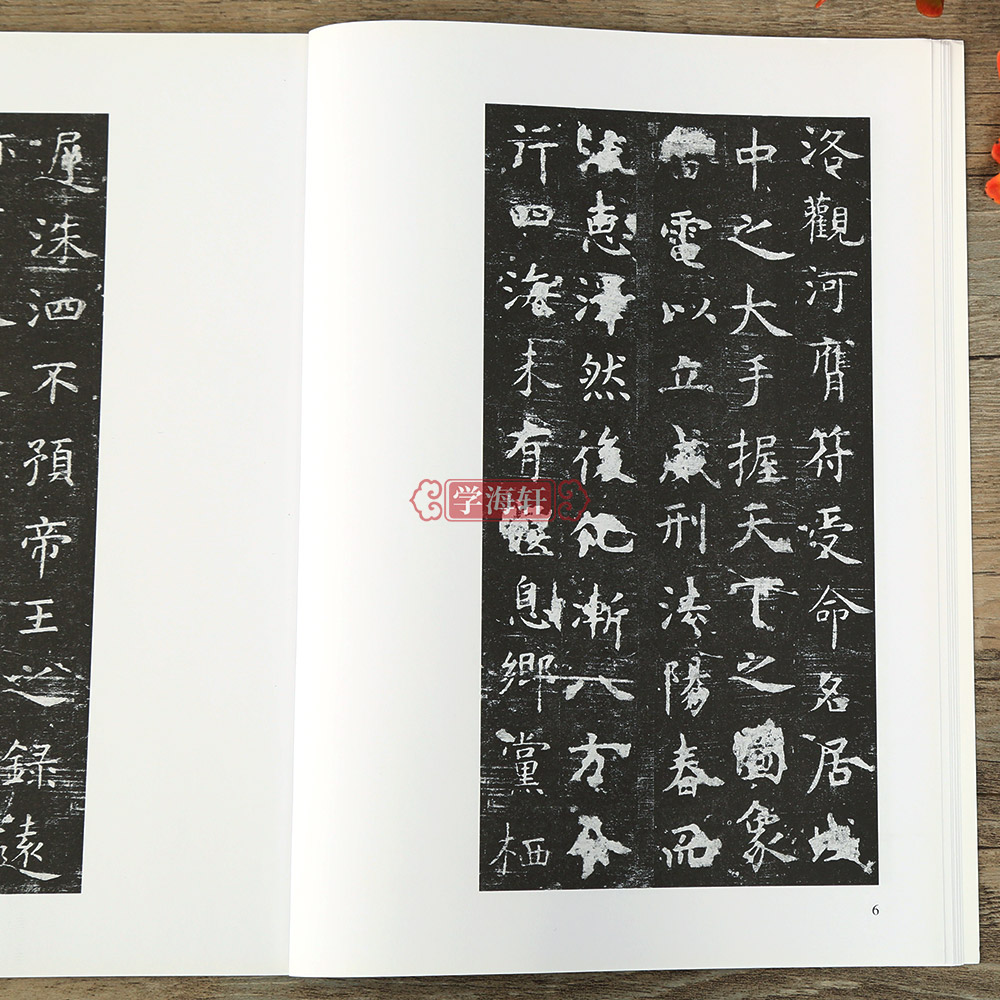 洛觀河膺符受命名居域
中之大手握天下之圖象
雷電以立威刑法陽春而
流惠澤然後化漸八方令
行四海未有偃息鄉黨栖
遲洙泗不預帝王之錄遠
学海轩
6